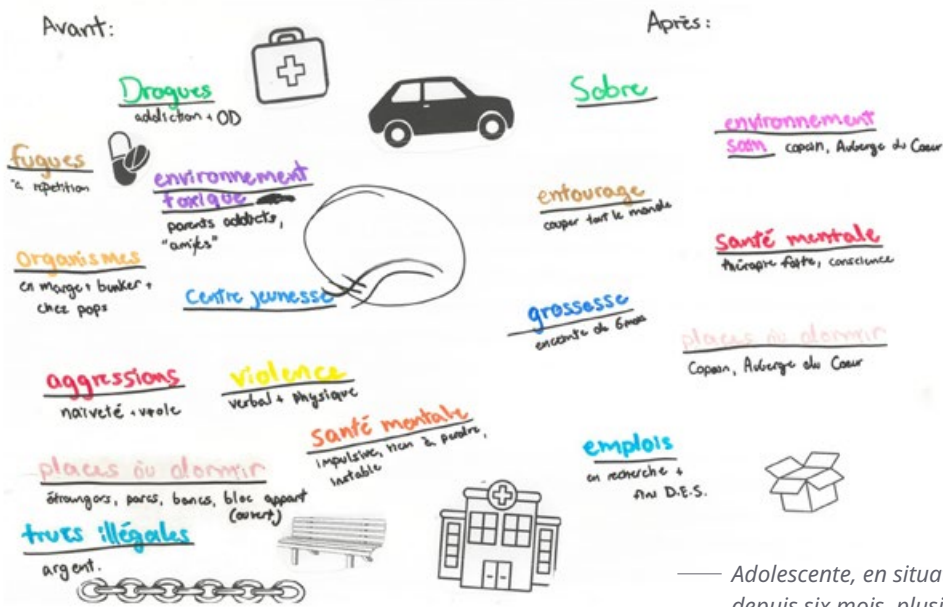 Avant:
Drogues
addiction + OD
fugues
à répétition
environnement
toxique
parents addicts,
"amies"
organismes
en marge + bunker +
chez pops
Centre jeunesse
aggressions
naïveté + viole
violence
verbal + physique
santé mentale
impulsive, rien à perdre,
instable
places où dormir
étrangers, parcs, bancs, bloc appart
(ouvert)
trucs illégales
argent.
Après:
Sobre
environnement
sain copain, Auberge du Coeur
entourage
couper tout le monde
santé mentale
thérapie faite, conscience
grossesse
enceinte de 6 mois
places où dormir
Copain, Auberge du Coeur
emplois
en recherche +
fini D.E.S.
Adolescente, en situa
depuis six mois, plusi